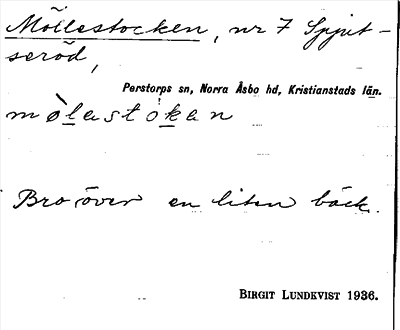 Möllestocken, nr 7 Spjut-
seröd,
Perstorps sn, Norra Åsbo hd, Kristianstads län.
mòlastòkan
Bro över en liten bäck.
BIRGIT LUNDKVIST 1936.